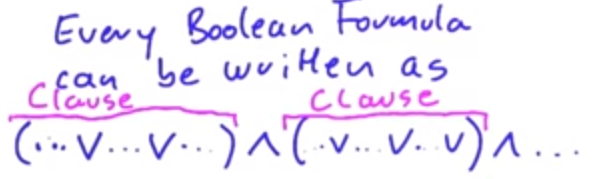 Every Boolean Formula
can be written as
Clause Clause
(... ∨ ... ∨ ...) ∧ (.. ∨ ... ∨ .. ∨) ∧ ...